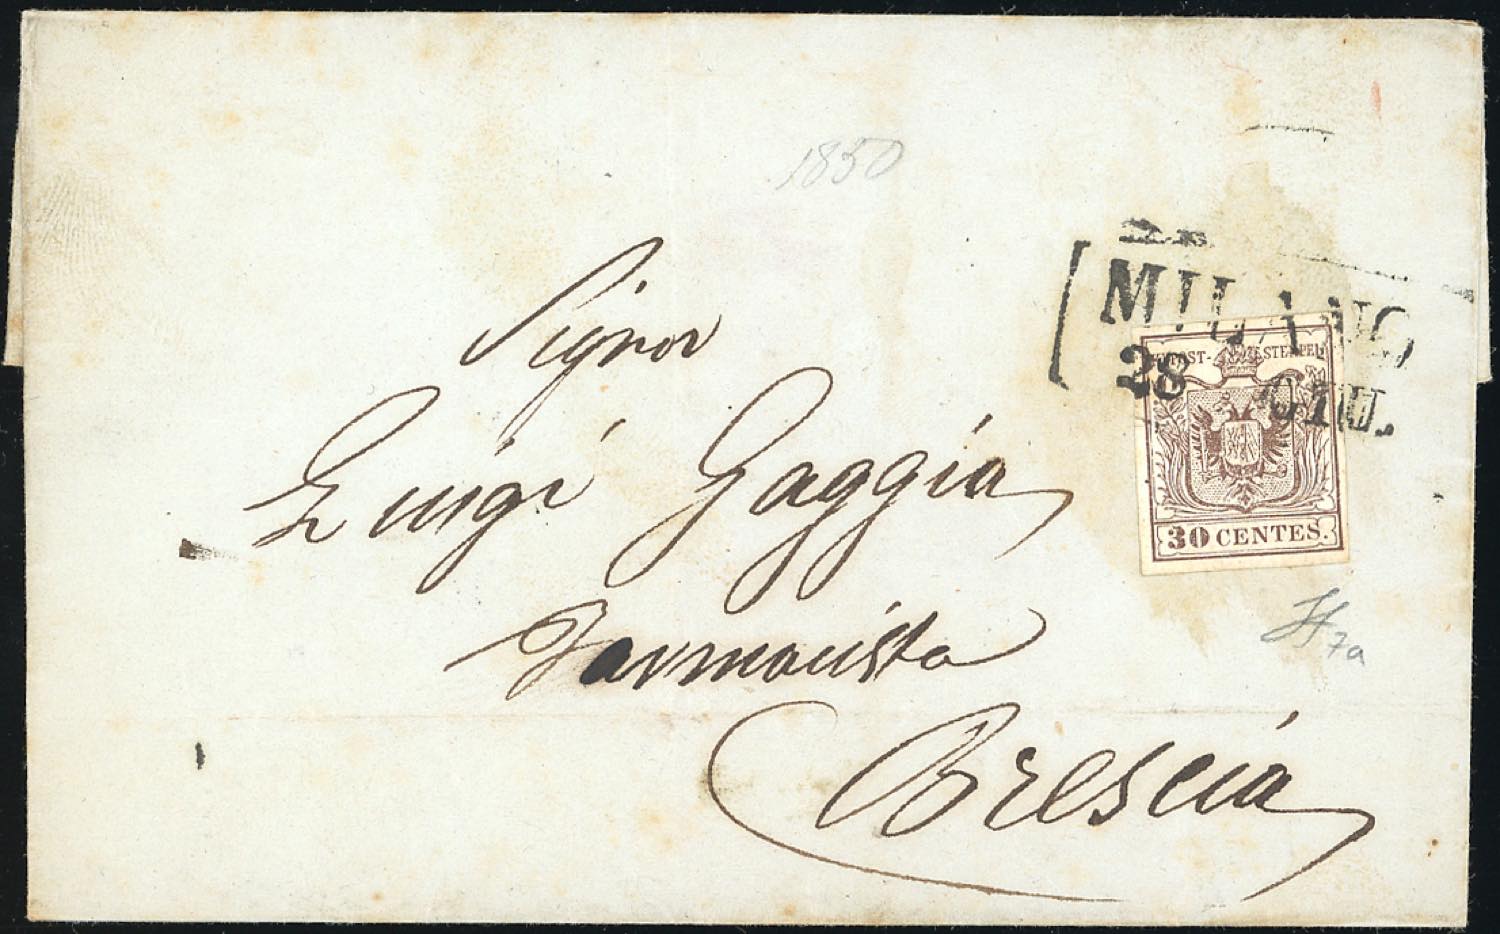 1850
MILANO
28 GIU.
POST- STEMPEL
30 CENTES.
7a
Signor
Luigi Gaggia
Farmacista
Brescia